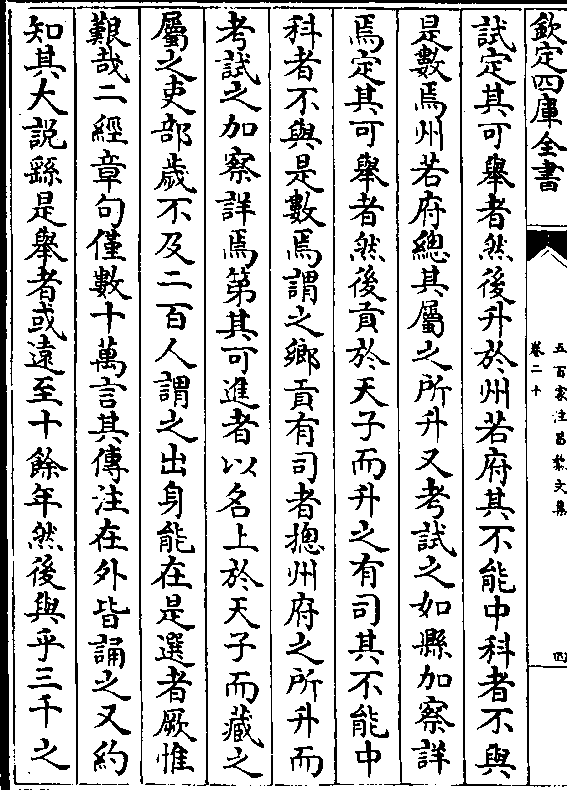 欽定四庫全書
五百家注昌黎文集
卷二十
四
試定其可舉者然後升於州若府其不能中科者不與
是數焉州若府總其屬之所升又考試之如縣加察詳
焉定其可舉者然後貢於天子而升之有司其不能中
科者不與是數焉謂之鄉貢有司者摠州府之所升而
考試之加察詳焉第其可進者以名上於天子而藏之
屬之吏部歲不及二百人謂之出身能在是選者厥惟
艱哉二經章句僅數十萬言其傳注在外皆誦之又約
知其大說繇是舉者或遠至十餘年然後與乎三千之